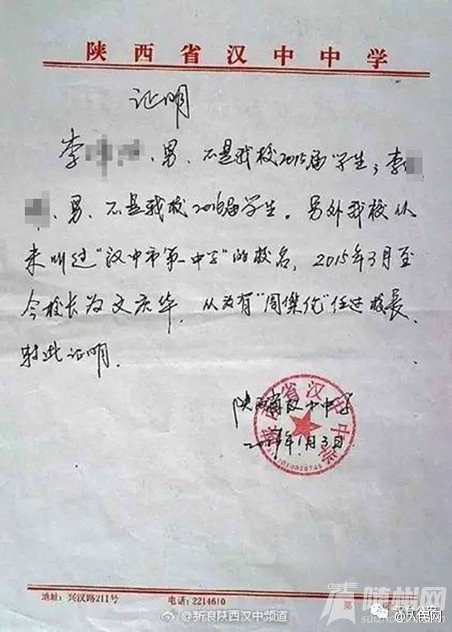 陕西省汉中中学
证明
李 、男、不是我校2015届学生;李
、男、不是我校2016届学生。另外我校从
未叫过“汉中市第一中学”的校名,2015年3月至
今校长为文庆华,从没有“周集优”任过校长
特此证明.
陕西省汉中中学
1月3日
地址:兴汉路211号
电话:2214610
@新浪陕西汉中频道
随州网